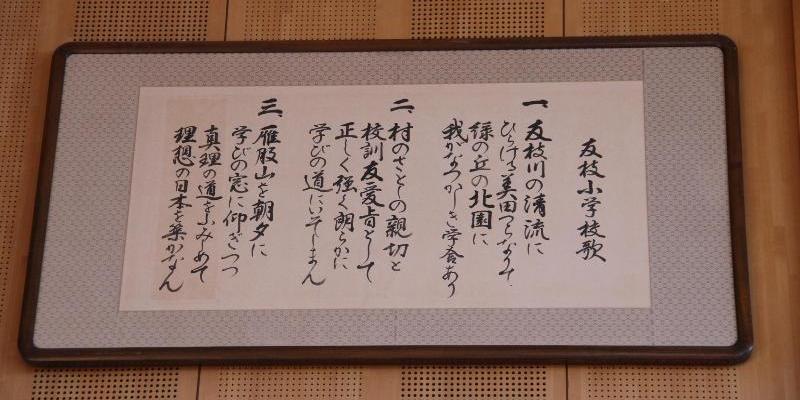 友枝小学校歌
一、友枝川の清流に
ひらける美田つらなりて
緑の丘の北園に
我がなつかしき学舎あり
二、村のさとしの親切と
校訓友愛旨として
正しく強く朗らかに
学びの道にいそしまん
三、雁股山を朝夕に
学びの窓に仰ぎつつ
真理の道をふみしめて
理想の日本を築かなん